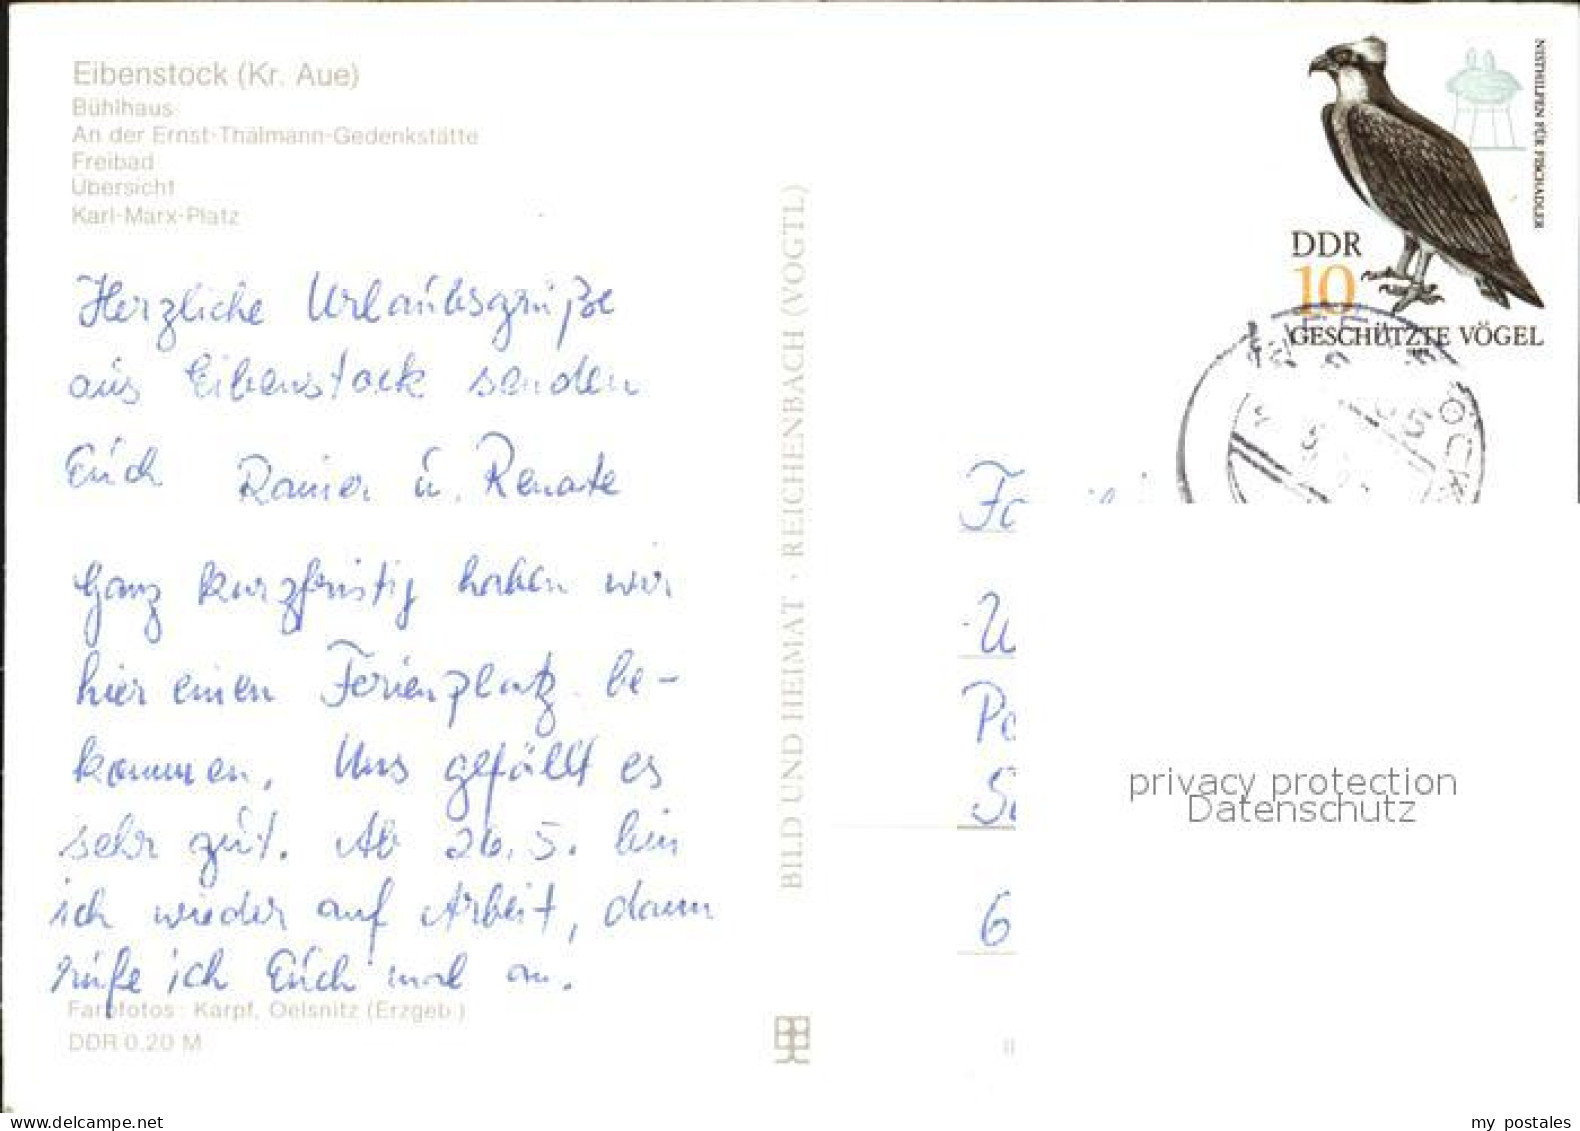 Eibenstock (Kr. Aue)
Bühlhaus
An der Ernst-Thälmann-Gedenkstätte
Freibad
Übersicht
Karl-Marx-Platz
Herzliche Urlaubsgrüße
aus Eibenstock senden
Euch Rainer u. Renate
Ganz kurzfristig haben wir
hier einen Ferienplatz be-
kommen. Uns gefällt es
sehr gut. Ab 26.5. bin
ich wieder auf Arbeit, dann
rufe ich Euch mal an.
Farbfotos: Karpf, Oelsnitz (Erzgeb.)
DDR 0.20 M
BILD UND HEIMAT · REICHENBACH (VOGTL)
NISTHILFEN FÜR FISCHADLER
DDR
10
GESCHÜTZTE VÖGEL
privacy protection
Datenschutz
6
my postales
www.delcampe.net